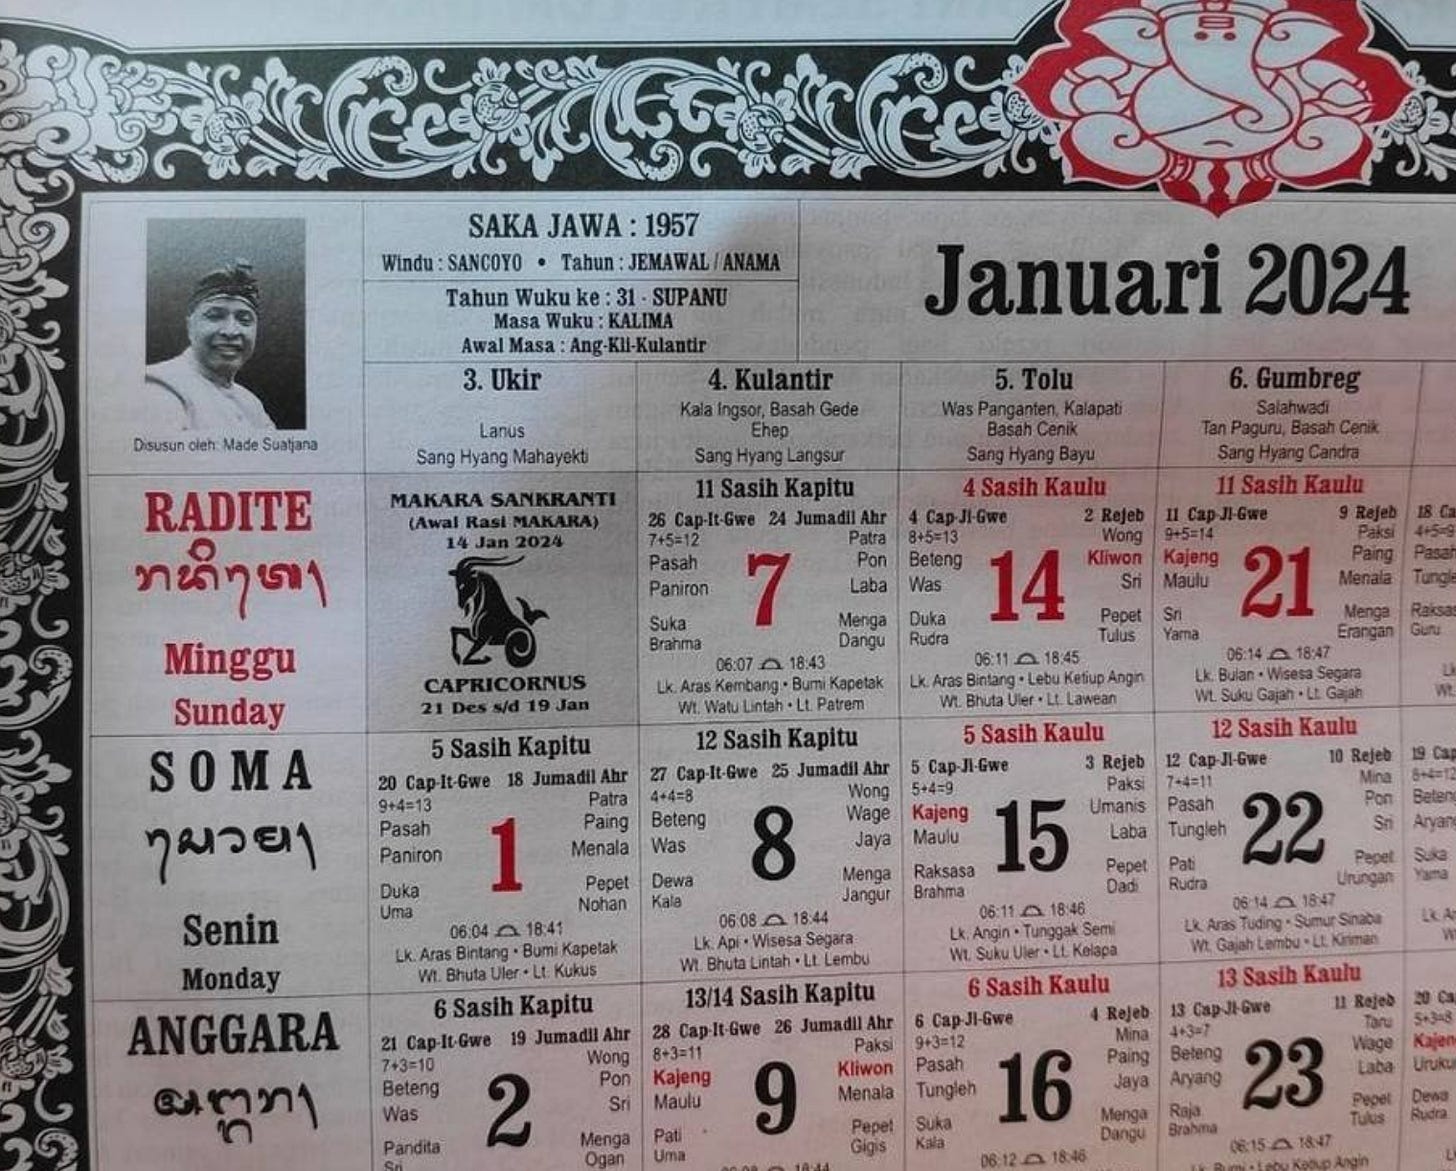 SAKA JAWA : 1957
Windu : SANCOYO • Tahun : JEMAWAL / ANAMA
Tahun Wuku ke : 31 - SUPANU
Masa Wuku : KALIMA
Awal Masa : Ang-Kli-Kulantir
Januari 2024
Disusun oleh: Made Suatjana
3. Ukir
Lanus
Sang Hyang Mahayekti
4. Kulantir
Kala Ingsor, Basah Gede
Ehep
Sang Hyang Langsur
5. Tolu
Was Panganten, Kalapati
Basah Cenik
Sang Hyang Bayu
6. Gumbreg
Salahwadi
Tan Paguru, Basah Cenik
Sang Hyang Candra
RADITE
Minggu
Sunday
MAKARA SANKRANTI
(Awal Rasi MAKARA)
14 Jan 2024
CAPRICORNUS
21 Des s/d 19 Jan
11 Sasih Kapitu
26 Cap-It-Gwe 24 Jumadil Ahr
7+5=12 Patra
Pasah 7 Pon
Paniron Laba
Suka Menga
Brahma Dangu
06:07 18:43
Lk. Aras Kembang • Bumi Kapetak
Wt. Watu Lintah • Lt. Patrem
4 Sasih Kaulu
4 Cap-Jl-Gwe 2 Rejeb
8+5=13 Wong
Beteng 14 Kliwon
Was Sri
Duka Pepet
Rudra Tulus
06:11 18:45
Lk. Aras Bintang • Lebu Ketiup Angin
Wt. Bhuta Uler • Lt. Lawean
11 Sasih Kaulu
11 Cap-Jl-Gwe 9 Rejeb
9+5=14 Paksi
Kajeng 21 Paing
Maulu Menala
Sri Menga
Yama Erangan
06:14 18:47
Lk. Bulan • Wisesa Segara
Wt. Suku Gajah • Lt. Gajah
18
4+5=9
Pasah
Guru
SOMA
Senin
Monday
5 Sasih Kapitu
20 Cap-It-Gwe 18 Jumadil Ahr
9+4=13 Patra
Pasah 1 Paing
Paniron Menala
Duka Pepet
Uma Nohan
06:04 18:41
Lk. Aras Bintang • Bumi Kapetak
Wt. Bhuta Uler • Lt. Kukus
12 Sasih Kapitu
27 Cap-It-Gwe 25 Jumadil Ahr
4+4=8 Wong
Beteng 8 Wage
Was Jaya
Dewa Menga
Kala Jangur
06:08 18:44
Lk. Api • Wisesa Segara
Wt. Bhuta Lintah • Lt. Lembu
5 Sasih Kaulu
5 Cap-Jl-Gwe 3 Rejeb
5+4=9 Paksi
Kajeng 15 Umanis
Maulu Laba
Raksasa Pepet
Brahma Dadi
06:11 18:46
Lk. Angin • Tunggak Semi
Wt. Suku Uler • Lt. Kelapa
12 Sasih Kaulu
12 Cap-Jl-Gwe 10 Rejeb
7+4=11 Mina
Pasah 22 Pon
Tungleh Sri
Pati Pepet
Rudra Urungan
06:14 18:47
Lk. Aras Tuding • Sumur Sinaba
Wt. Gajah Lembu • Lt. Kiriman
19
8+4=12
Suka
Yama
ANGGARA
6 Sasih Kapitu
21 Cap-It-Gwe 19 Jumadil Ahr
7+3=10 Wong
Beteng 2 Pon
Was Sri
Pandita Menga
Sri Ogan
13/14 Sasih Kapitu
28 Cap-It-Gwe 26 Jumadil Ahr
8+3=11 Paksi
Kajeng 9 Kliwon
Maulu Menala
Pati Pepet
Uma Gigis
6 Sasih Kaulu
6 Cap-Jl-Gwe 4 Rejeb
9+3=12 Mina
Pasah 16 Paing
Tungleh Jaya
Suka Menga
Kala Dangu
06:12 18:46
13 Sasih Kaulu
13 Cap-Jl-Gwe 11 Rejeb
4+3=7 Taru
Beteng 23 Wage
Aryang Laba
Raja Pepet
Brahma Tulus
06:15 18:47
20
5+3=8
Dewa
Rudra